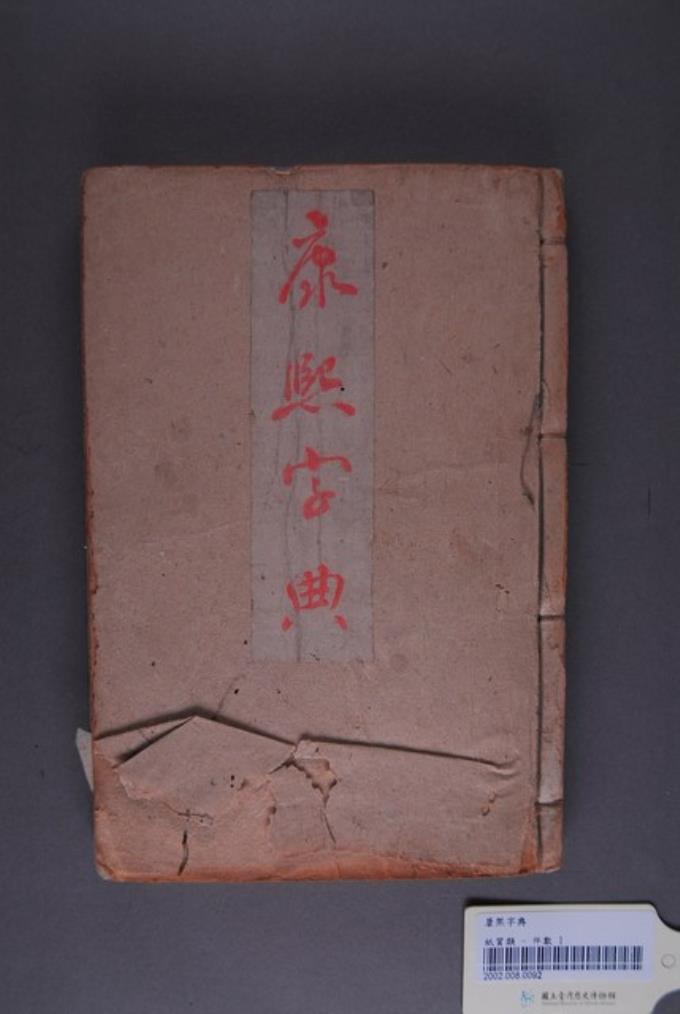 康熙字典
康熙字典
紙質類 - 件數 1
2002.008.0092
國立臺灣歷史博物館